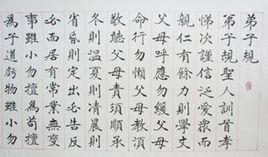 弟子規
弟子規聖人訓首孝
悌次謹信泛愛眾而
親仁有餘力則學文
父母呼應勿緩父母
命行勿懶父母教須
敬聽父母責須順承
冬則溫夏則凊晨則
省昏則定出必告反
必面居有常業無變
事雖小勿擅為苟擅
為子道虧物雖小勿